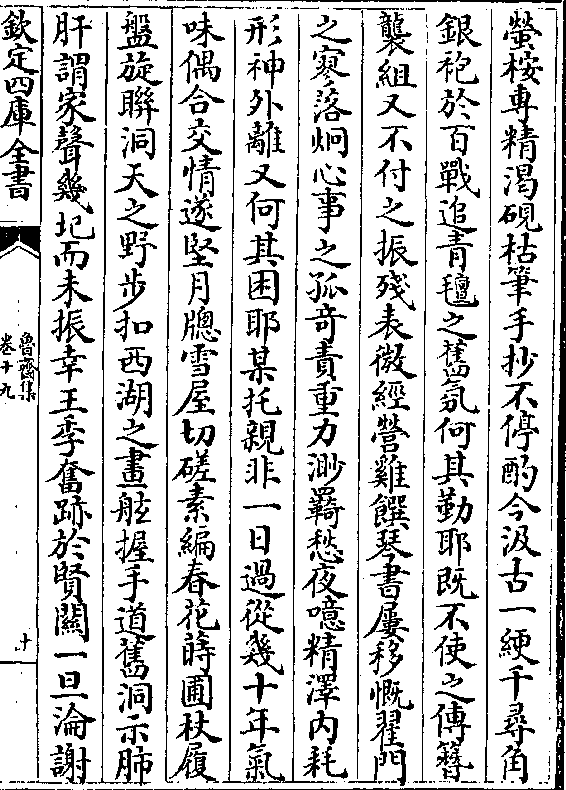 螢桉専精渇硯枯筆手抄不停酌今汲古一綆千尋角
銀袍於百戰追青氊之舊氛何其勤耶既不使之傳簪
襲組又不付之振殘表微經營雞饌琴書屢移慨翟門
之寥落炯心事之孤竒責重力渺羇愁夜噫精澤内耗
形神外離又何其困耶某托親非一日過從幾十年氣
味偶合交情遂堅月牕雪屋切磋素編春花蒔圃杖履
盤旋聯洞天之野步扣西湖之畫舷握手道舊洞示肺
肝謂家聲幾圮而未振幸王季奮跡於賢關一旦淪謝
欽定四庫全書
魯齋集
卷十九
十